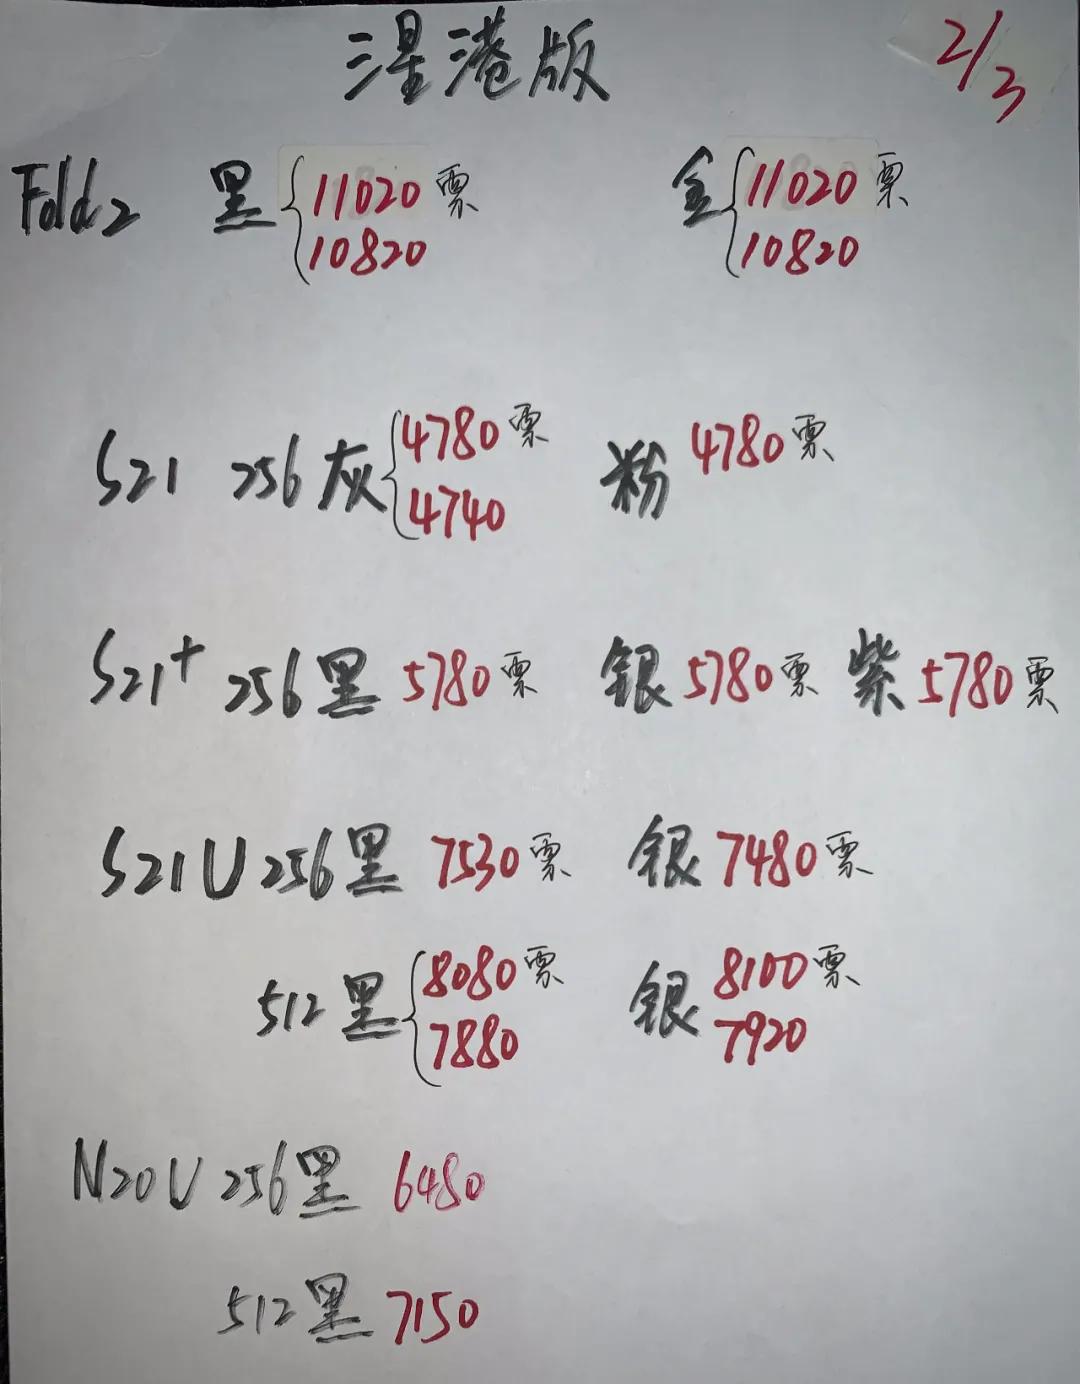 三星港版 2/3
Fold2 黑 11020票 金 11020票
10820 10820
S21 256 灰 4780票 粉 4780票
4740
S21+ 256 黑 5780票 银 5780票 紫 5780票
S21U 256 黑 7530票 银 7480票
512 黑 8080票 银 8100票
7880 7920
N20U 256 黑 6480
512 黑 7150